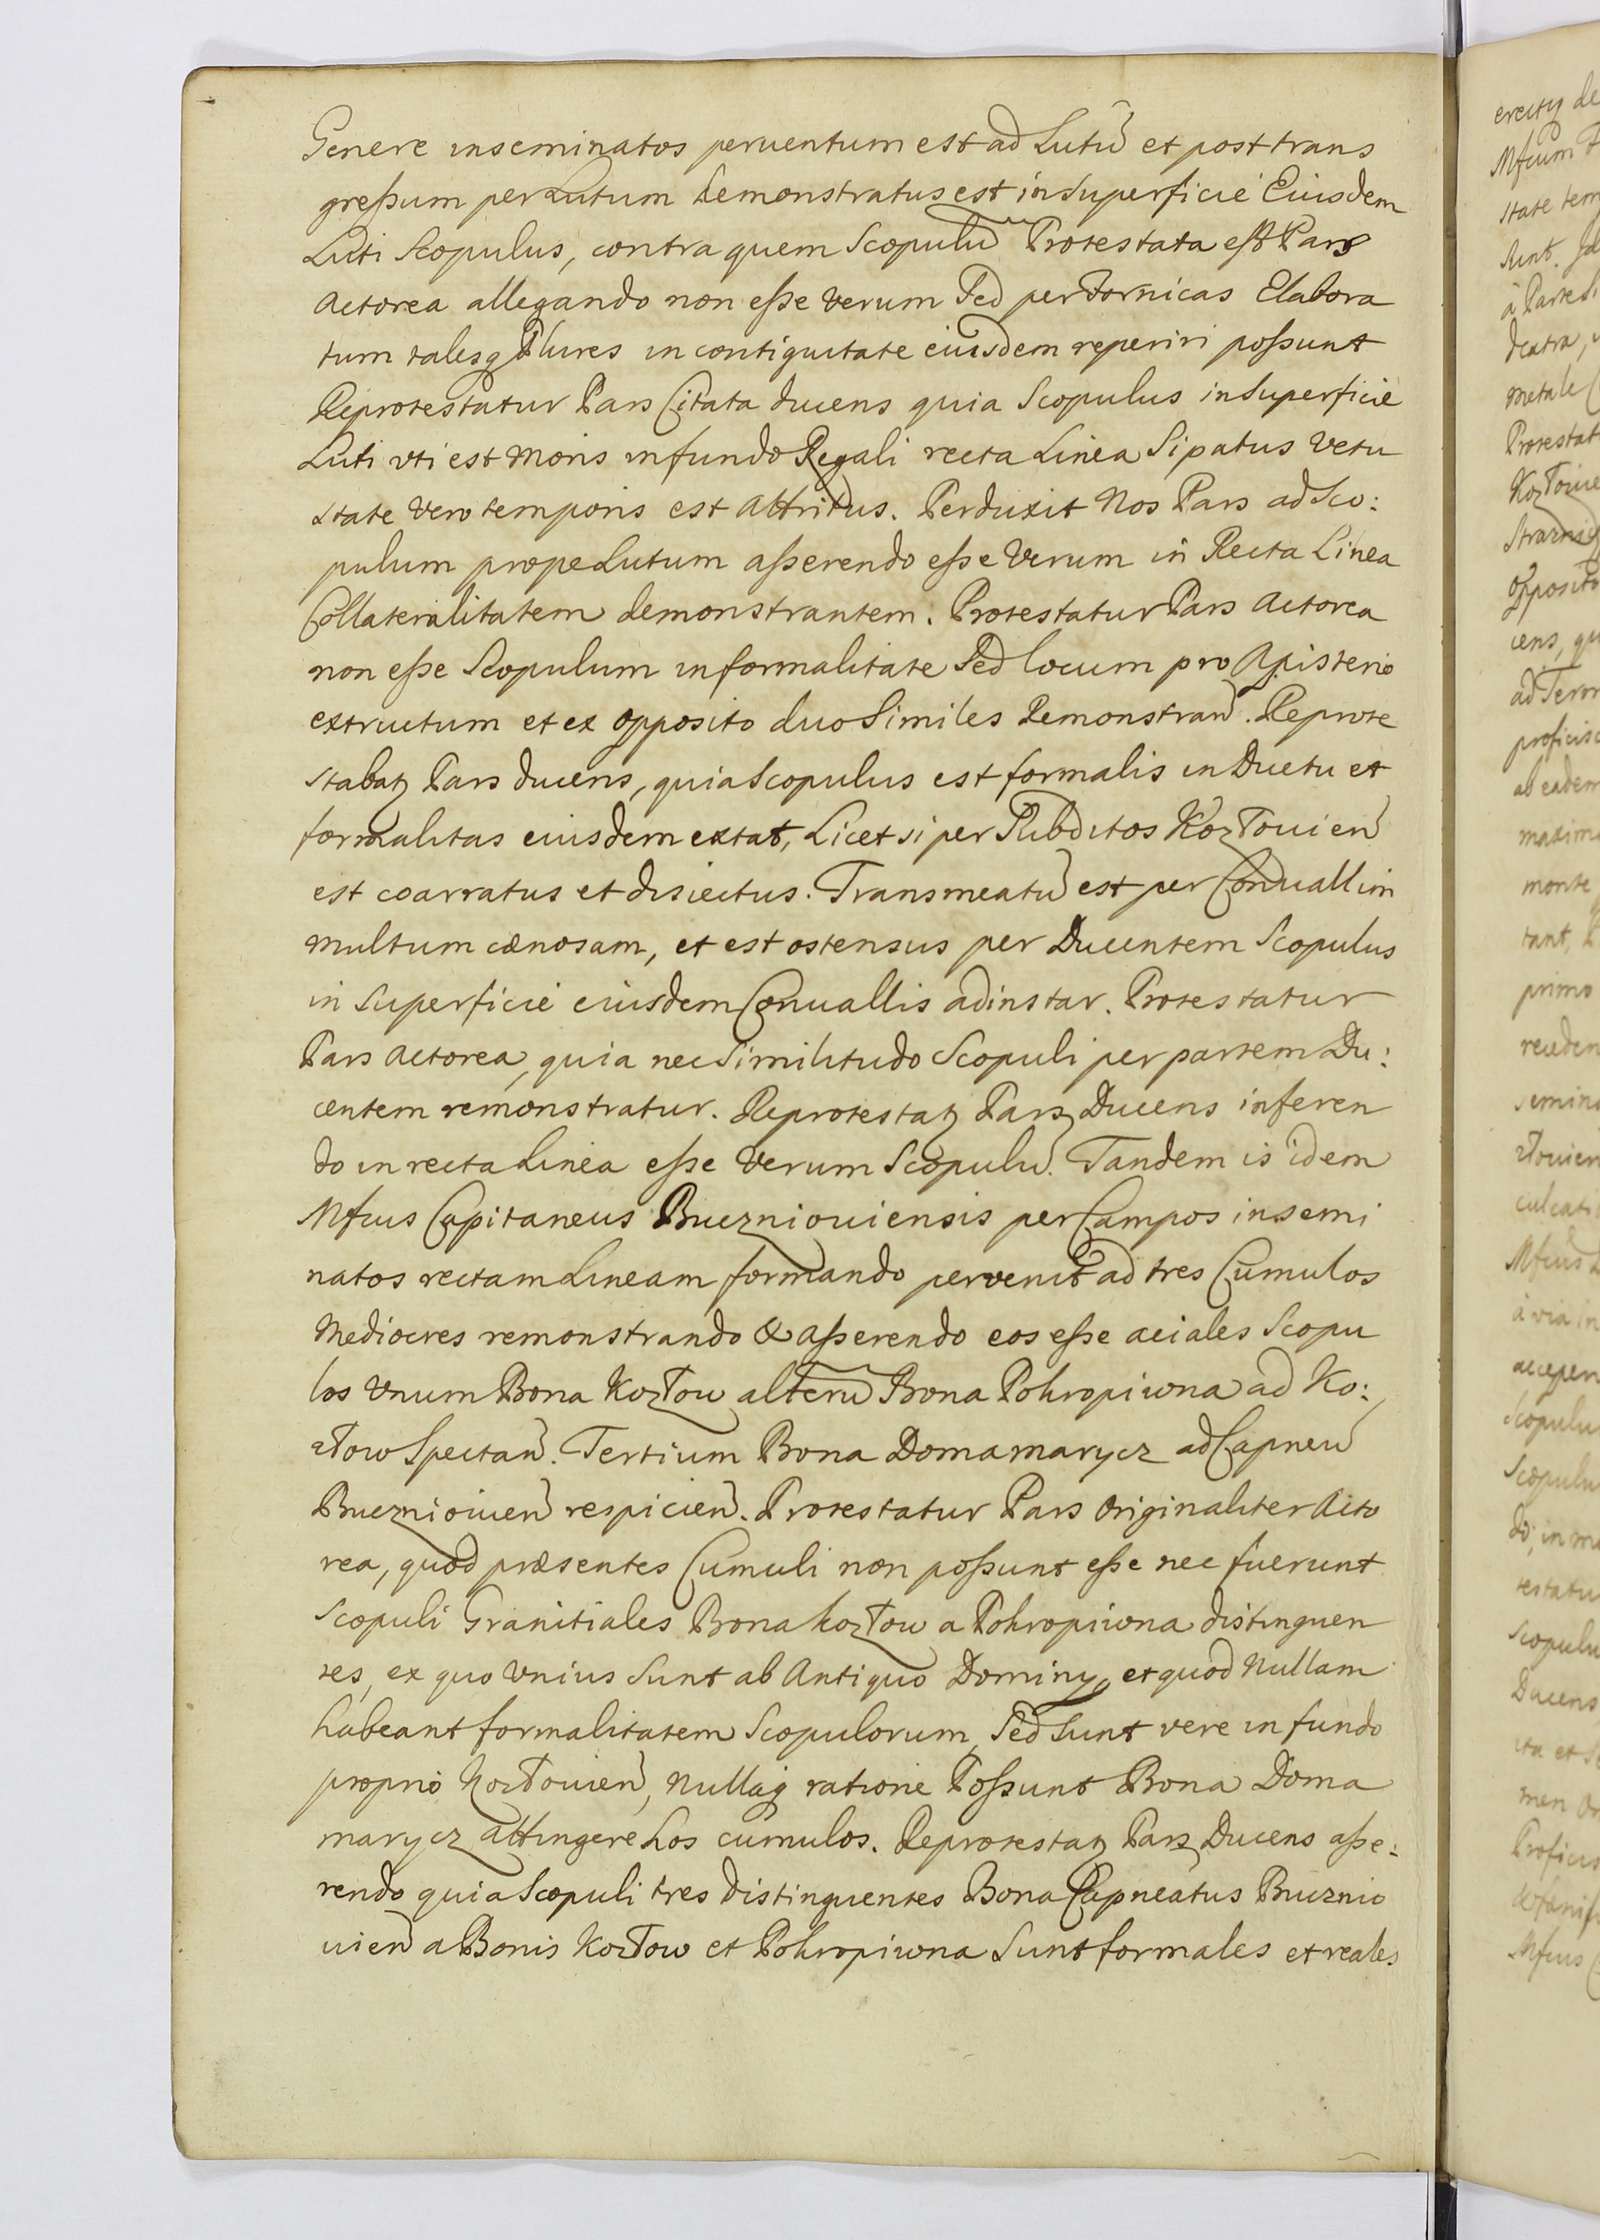 Genere inseminatos peruentum est ad Lutũ et post trans
greſsum per Lutum demonstratus est in Superficie Eiusdem
Luti Scopulus, contra quem Scopulũ Protestata est Pars
Actorea allegando non eſse verum Sed per Fornicas Elabora
tum talesq Plures in contiguitate eiusdem reperiri poſsunt
Reprotestatur Pars Citata ducens quia Scopulus in Superficie
Luti vti est moris in fundo Regali recta Linea Sipatus vetu
state vero temporis est Attritus. Perduxit Nos Pars ad Sco:
pulum prope Lutum aſserendo eſse verum in Recta Linea
Collateralitatem demonstrantem. Protestatur Pars Actorea
non eſse Scopulum in formalitate Sed locum pro Apisterio
extructum et ex opposito duo Similes Remonstrañ. Reprote
statʒ Pars ducens, quia Scopulus est formalis in Ductu et
formalitas eiusdem extat, Licet si per Subditos Kozłouieñ
est coarratus et disiectus. Transmeatũ est per Conuallim
multum cænosam, et est ostensus per Ducentem Scopulus
in Superficie eiusdem Conuallis ad instar. Protestatur
Pars Actorea, quia nec Similitudo Scopuli per partem Du:
centem remonstratur. Reprotestatʒ Pars Ducens inferen
do in recta Linea eſse verum Scopulũ. Tandem is idem
Mfcus Capitaneus Buczniouiensis per Campos insemi
natos rectam Lineam formando pervenit ad tres Cumulos
Mediocres remonstrando & aſserendo eos eſse aciales Scopu
los vnum Bona Kozłow alterũ Bona Pohropiwna ad Ko:
złow Spectañ. Tertium Bona Domamarycz ad Capneũ
Buczniouieñ respicieñ. Protestatur Pars Originaliter Acto
rea, quod præsentes Cumuli non poſsunt eſse nec fuerunt
Scopuli Granitiales Bona Kozłow a Pohropiwna distinguen
tes, ex quo vnius Sunt ab Antiquo Dominy, et quod Nullam
habeant formalitatem Scopulorum, Sed Sunt vere in fundo
proprio Kozłouieñ, Nullaq ratione Poſsunt Bona Doma
marycz attingere hos cumulos. Reprotestatʒ Pars Ducens aſse:
rendo quia Scopuli tres distinguentes Bona Capneatus Buiznio
uieñ a Bonis Kozłow et Pohropiwna Sunt formales et reales